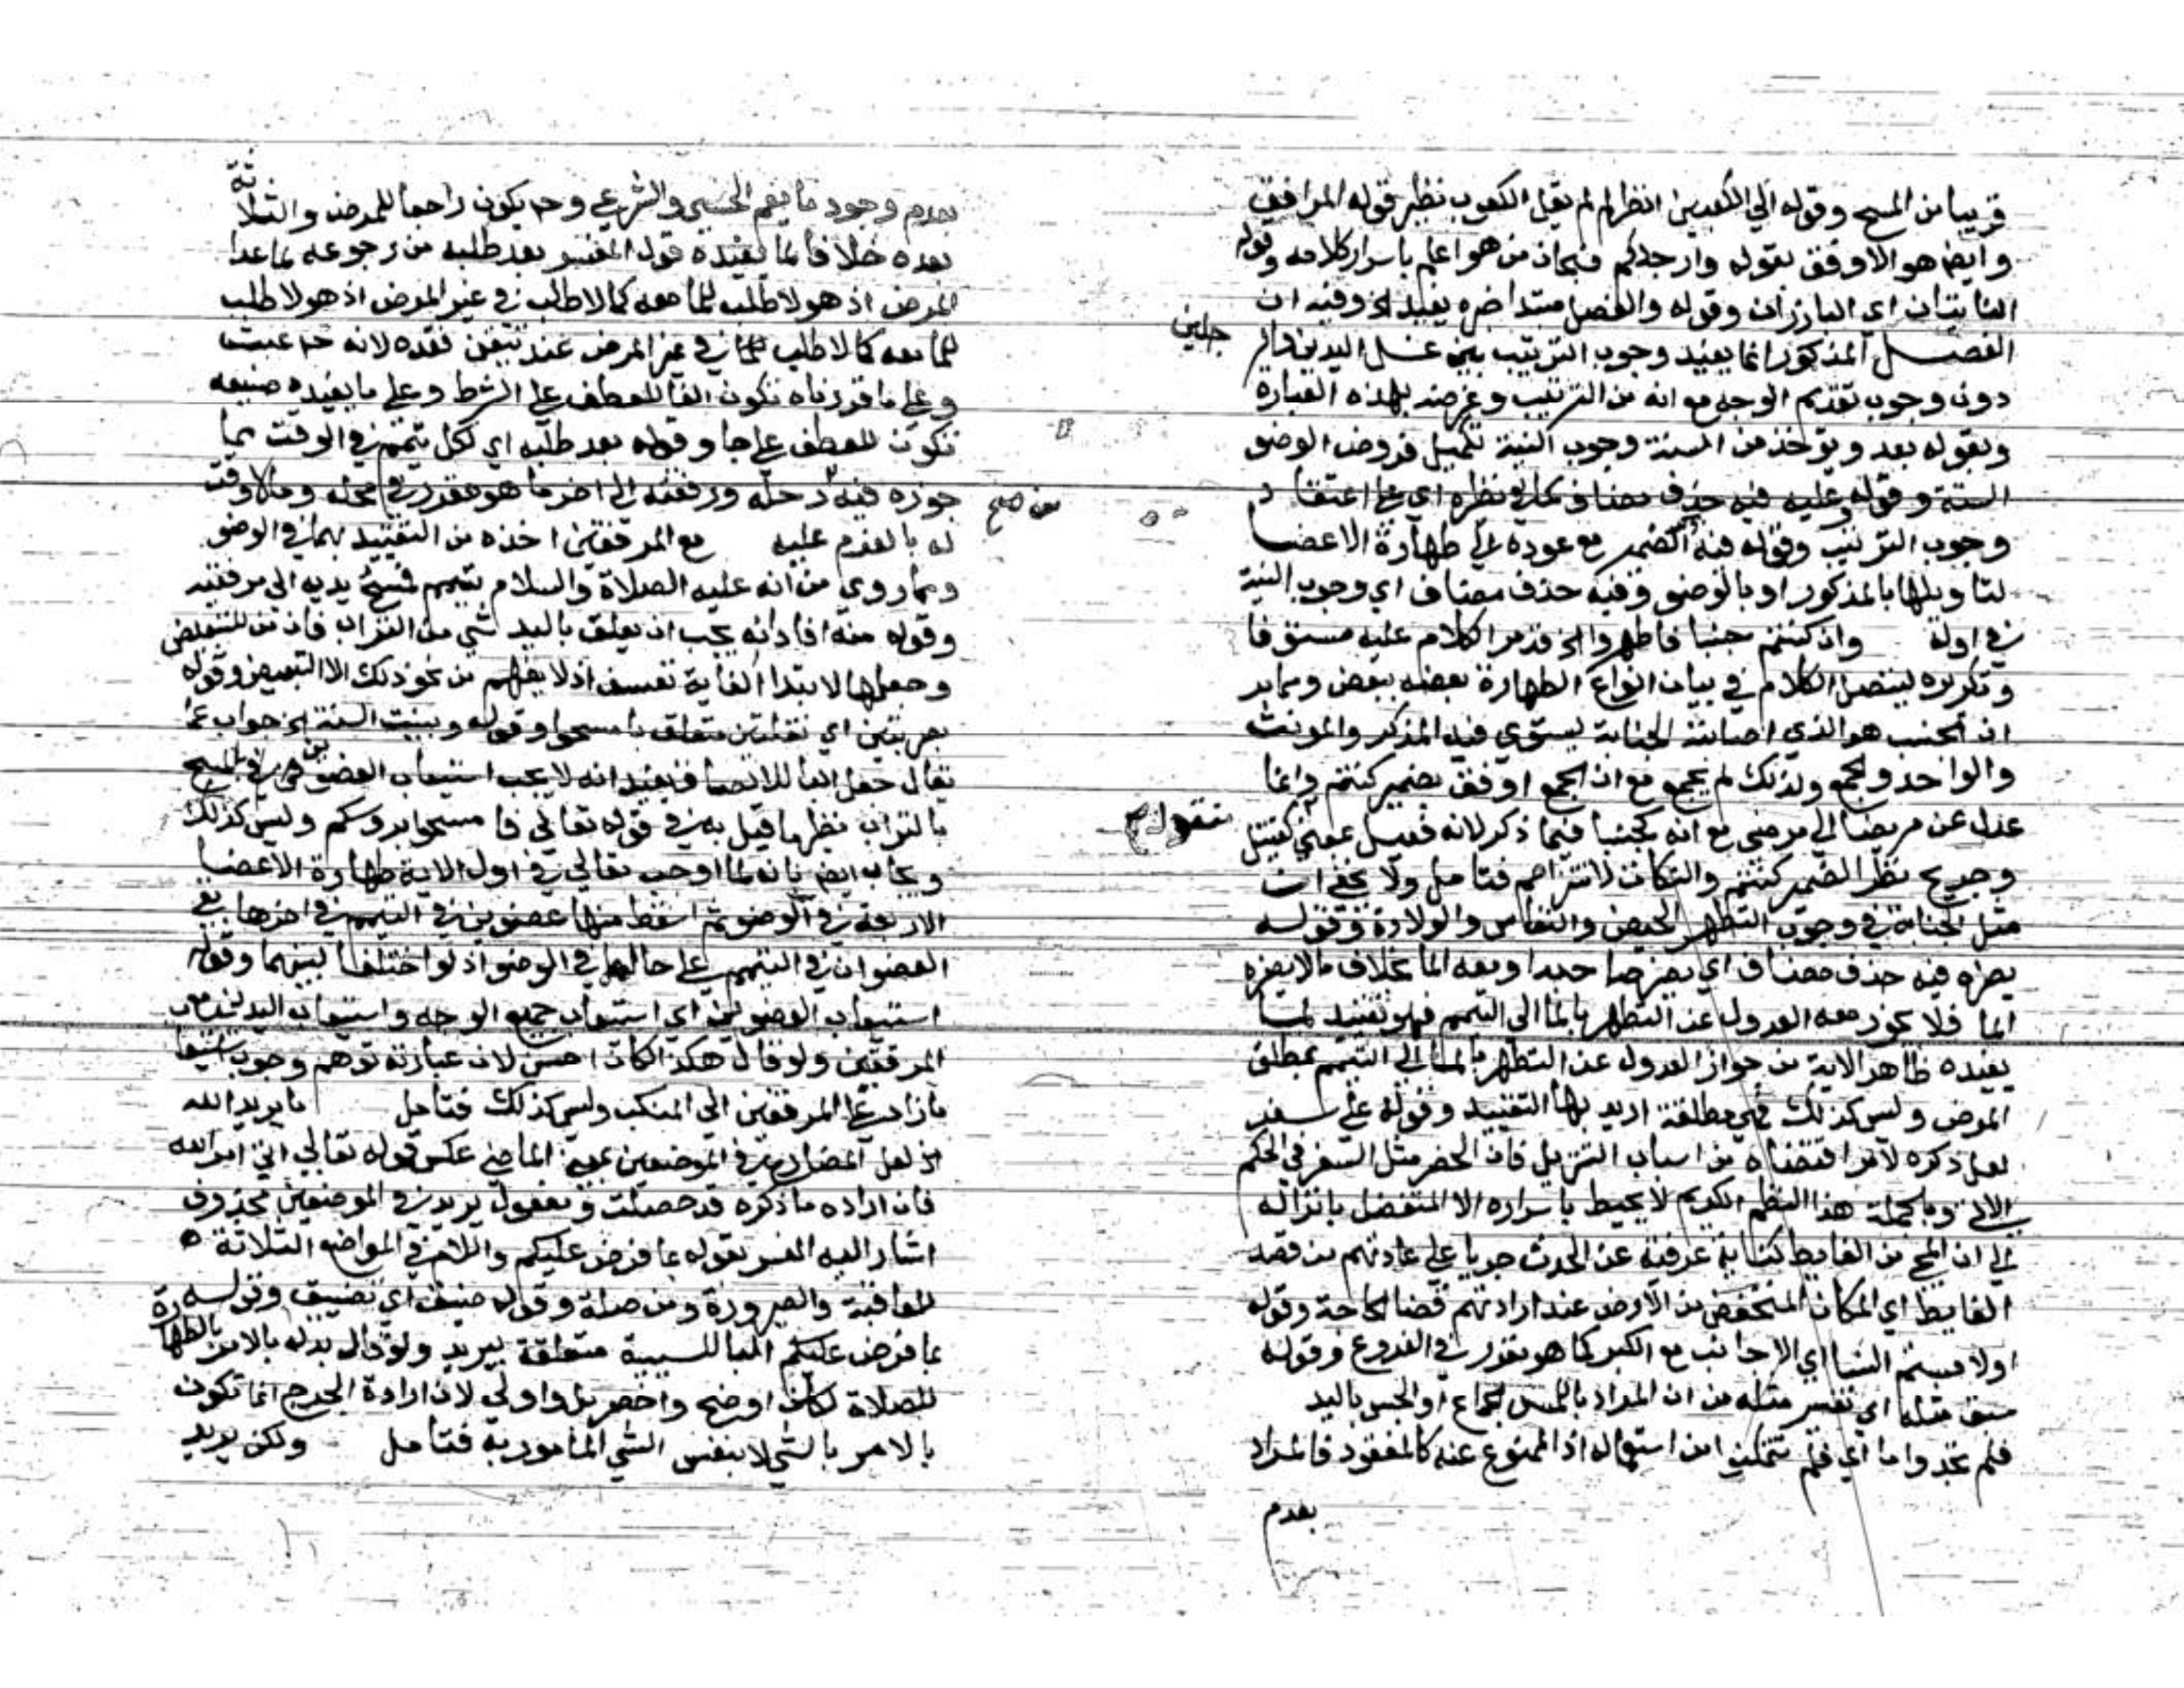 قريبا من المسح وقوله الي الكعبين انظر لم لم يقل الكعوب نظير قوله المرافق
وايضا هو الاوفق بقوله وارجلكم فسبحان من هو اعلم باسرار كلامه وقوله
الناتيان اي البارزان وقوله والفصل مبتدا خبره يفيد الخ وفيه ان
الفصل المذكور انما يفيد وجوب الترتيب بين غسل اليدين والر
جلين
دون وجوب تقديم الوجه مع انه من الترتيب وغرضه بهذه العبارة
وبقوله بعد ويوخذ من السنة وجوب النية تكميل فروض الوضو
الستة وقوله وعليه فيه حذف مضاف اي علي اعتقاد
وجوب الترتيب وقوله فيه الضمير مع عوده الي طهارة الاعضا
لتاويلها بالمذكور او بالوضو وفيه حذف مضاف اي وجوب النية
في اوله وان كنتم جنبا فاطهروا الخ قد مر الكلام عليه مستوفا
وتكريره ليتصل الكلام في بيان انواع الطهارة بعضه ببعض ومما مر
ان الجنب هو الذي اصابته الجنابة يستوي فيه المذكر والمونث
والواحد والجمع ولذلك لم يجمع مع ان الجمع اوفق بضمير كنتم وانما
عدل عن مريضا الي مرضي مع انه كجنبا فيما ذكر لانه فعيل كقتيل
وجريح نظر الضمير كنتم فتامل ولا يخفي ان
مثل الجنابة في وجوب التطهر الحيض والنفاس والولادة وقوله
يضره فيه حذف مضاف اي بمرضا معه الما بخلاف ما لا يضره
الما فلا يجوز معه العدول عن التطهر بالما الي التيمم فهو تقييد لما
يفيده ظاهر الاية من جواز العدول عن التطهر بالما الي التيمم بمطلق
المرض وليس كذلك فهي مطلقة اريد بها التقييد وقوله علي سفر
لعل ذكره من اسباب التنزيل فان الحضر مثل السفر في الحكم
الاتي وبالجملة هذا النظم الكريم لا يحيط باسراره الا المتفضل بانزاله
الي ان المجي من الغايط كناية عرفية عن الحدث جريا علي عادتهم من قصد
الغايط اي المكان المنخفض من الارض عند ارادتهم قضا الحاجة وقوله
اولامستم النسا اي الاجانب مع الكبر كما هو مقرر في الفروع وقوله
سبق مثله اي تفسير مثله من ان المراد باللمس الجماع او الجس باليد
فلم تجدوا ما اي فلم تتمكنوا من استعماله اذ الممنوع عنه كالمفقود فالمراد
بعدم
بعدم وجود ما يعم الحسي والشرعي وح يكون راجعا للمرض والثلاثة
بعده خلافا لما يفيده قول المفسر بعد طلبه من رجوعه لما عدا
المرض اذ هو لا طلب للما معه كما لا طلب في غير المرض اذ هو لا طلب
للما معه كما لا طلب للما في غير المرض عند تيقن فقده لانه ح عبث
وعلي ما قررناه تكون الفا للعطف علي الشرط وعلي ما يفيده صنيعه
تكون للعطف علي جا وقوله بعد طلبه اي لكل تيمم في الوقت بما
جوزه فيه رحله ورفقته الي اخر ما هو مقرر في محله
له بالعدم عليه مع المرفقين اخذه من التقييد بهما في الوضو
ومما روي من انه عليه الصلاة والسلام تيمم فمسح يديه الي مرفقيه
وقوله منه افاد انه يجب ان يعلق باليد شي من التراب فان من للتبعيض
وجعلها لابتدا الغاية تعسف اذ لا يفهم من نحو ذلك الا التبعيض وقوله
بضربتين اي نقلتين متعلق بامسحوا وقوله وبينت السنة الخ جواب عما
يقال جعل البا للالصاق يفيد انه لا يجب استيعاب العضوين في المسح
بالتراب نظير ما قيل به في قوله تعالي فامسحوا بروسكم وليس كذلك
ويجاب ايضا بانه لما اوجب تعالي في اول الاية طهارة الاعضا
الاربعة في الوضو ثم اسقط منها عضوين في التيمم في اخرها بقي
العضوان في التيمم علي حالهما في الوضو اذ لو اختلفا لبينهما وقوله
استيعاب العضوين اي استيعاب جميع الوجه واستيعاب اليدين مع
المرفقين ولو قال هكذا لكان احسن لان عبارته توهم وجوب استيعاب
ما زاد علي المرفقين الي المنكب وليس كذلك فتامل ما يريد الله
الخ لعل المضارع في الموضعين بمعني الماضي عكس قوله تعالي اتي امر الله
فان اراده ما ذكره قد حصلت ومفعول يريد في الموضعين محذوف
اشار اليه المفسر بقوله بما فرض عليكم واللام في المواضع الثلاثة
للعاقبة والصيرورة ومن صلة وقوله ضيق اي تضييق وقوله
بما فرض عليكم البا للسببية متعلقة بيريد ولو قال بدله بالامر بالطهارة
للصلاة لكان اوضح واخصر بل واولي لان ارادة الحرج انما تكون
بالامر بالشي لا بنفس الشي المامور به فتامل ولكن يريد